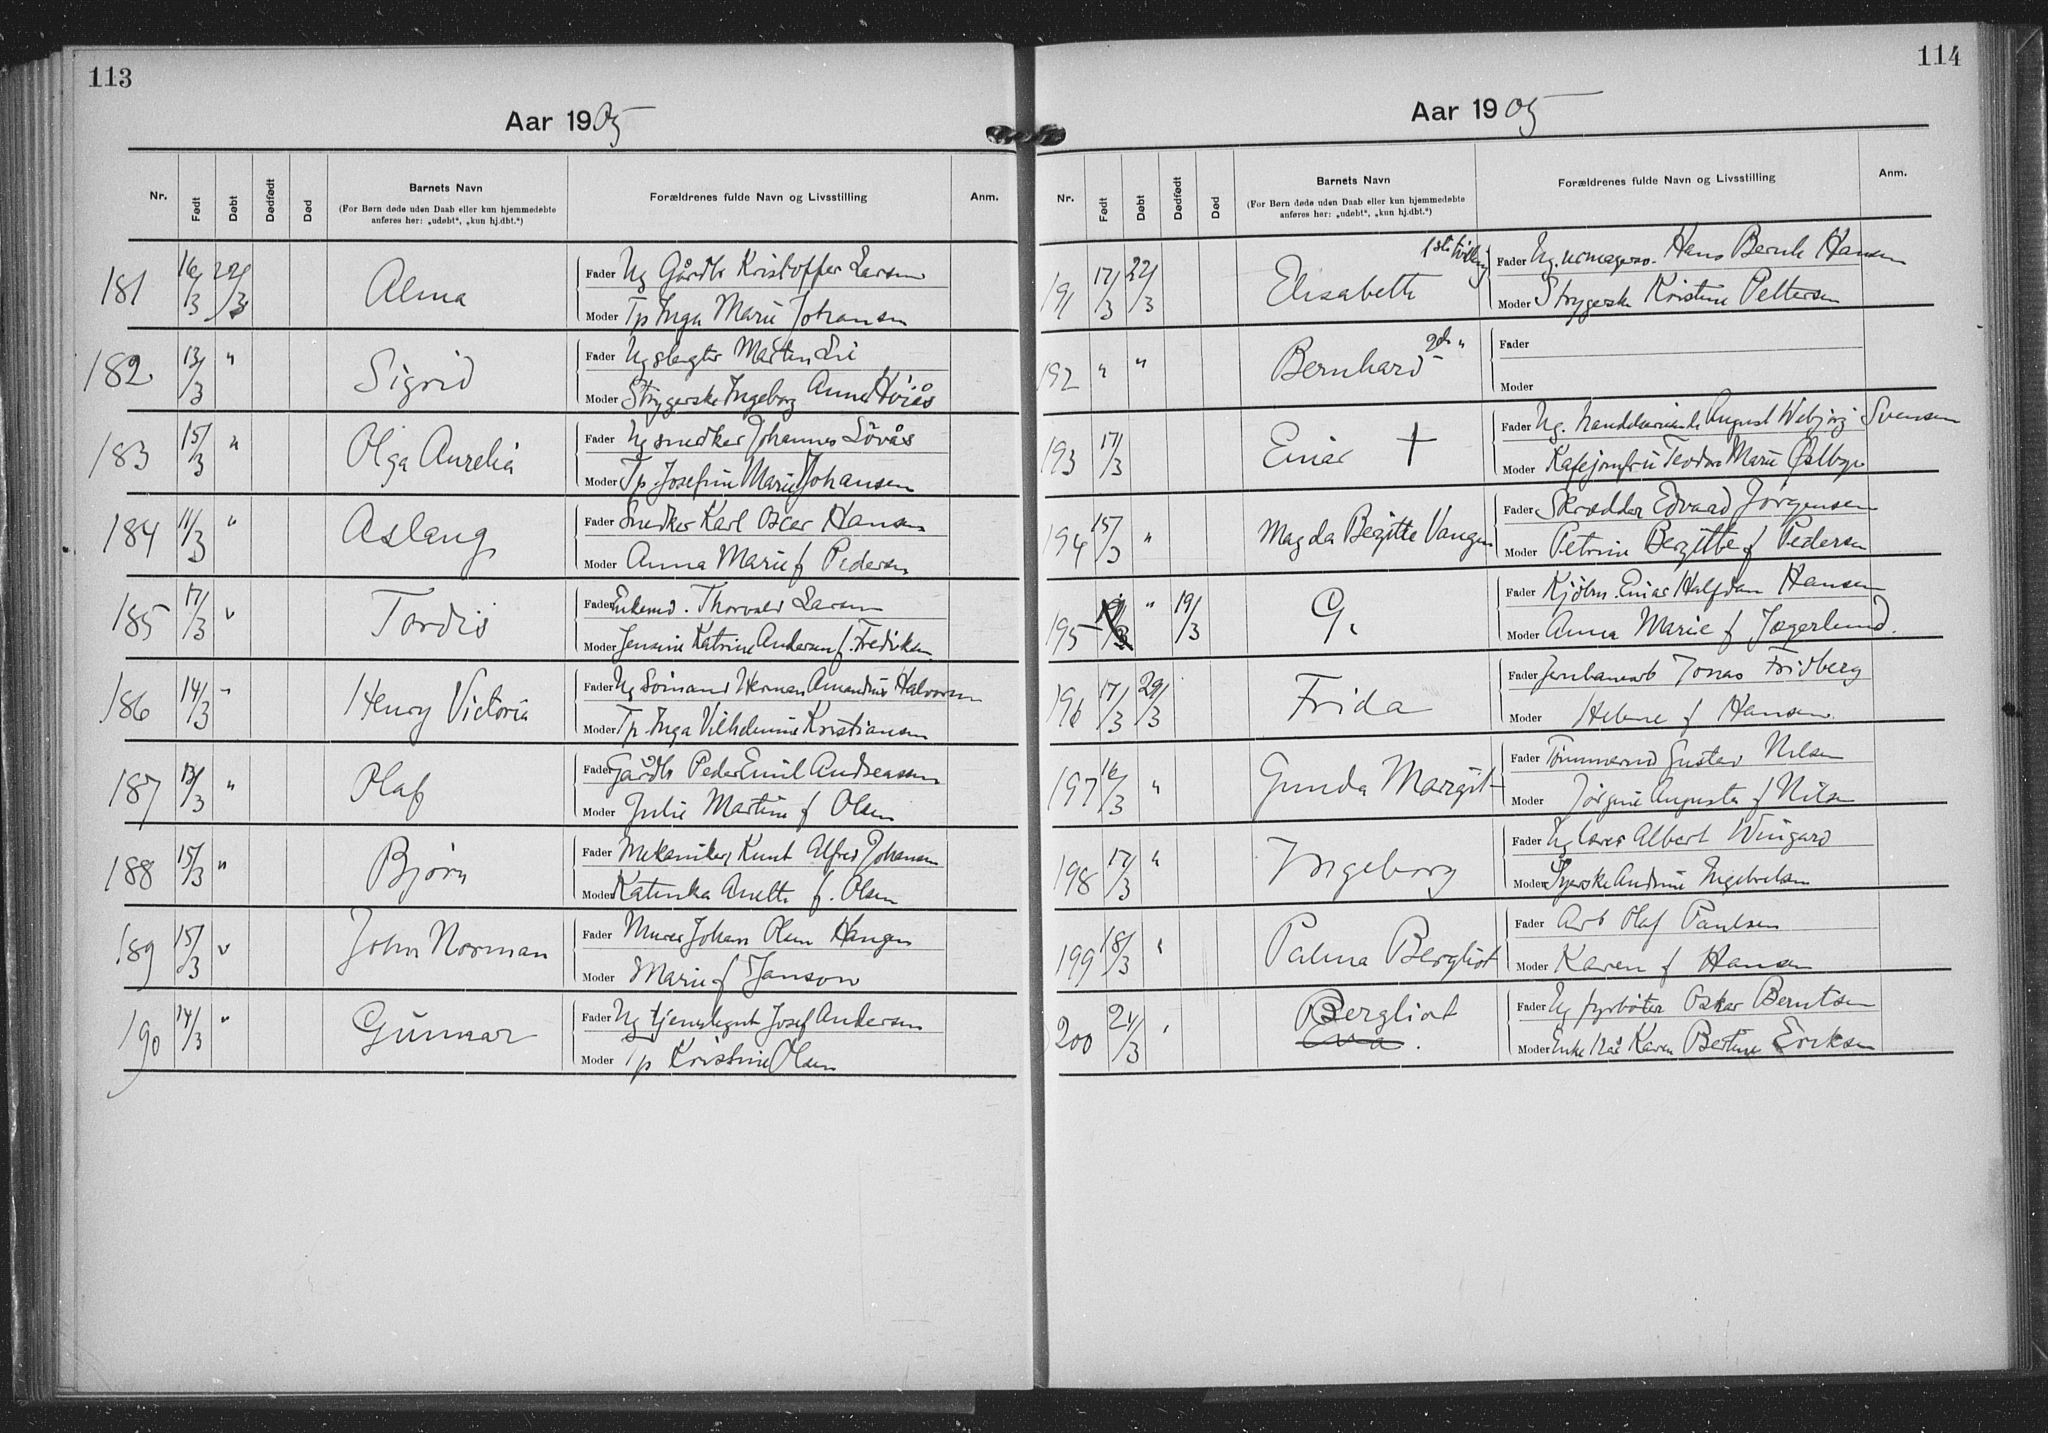 113
Aar 1905
Nr. Født Døbt Dødfødt Død Barnets Navn Forældrenes fulde Navn og Livsstilling Anm.
(For Børn døde uden Daab eller kun hjemmedøbte
anføres her: „udøbt“, „kun hj.dbt.“)
181 16/3 22/3 Alma Fader Ug Gårdbr Kristoffer Larsen
Moder Tp Inga Marie Johansen
182 13/3 " Sigrid Fader Ug slagter Martin
Moder Strygerske Ingeborg Anna
183 15/3 " Olga Aurelia Fader Ug snedker Johannes Lövås
Moder Tp. Josefine Marie Johansen
184 11/3 " Aslaug Fader Snedker Karl Oscar Hansen
Moder Anna Marie f Pedersen
185 17/3 " Tordis Fader Enkemd. Thorvald Larsen
Moder Jensine Katrine Andersen f. Fredriksen
186 14/3 " Henry Victoria Fader Ug Sömand Herman Amandus Halvorsen
Moder Tp. Inga Vilhelmine Kristiansen
187 13/3 " Olaf Fader Gårdbr Peder Emil Andreassen
Moder Julie Martine f Olsen
188 15/3 " Bjørn Fader Mekaniker Knut Alfred Johansen
Moder Katinka Anette f. Olsen
189 15/3 " John Norman Fader Murer Johan Olsen Haugen
Moder Marie f Janson
190 14/3 " Gunnar Fader Ug Josef Andersen
Moder Tp Kristine Olsen
114
Aar 1905
Nr. Født Døbt Dødfødt Død Barnets Navn Forældrenes fulde Navn og Livsstilling Anm.
(For Børn døde uden Daab eller kun hjemmedøbte
anføres her: „udøbt“, „kun hj.dbt.“)
191 17/3 22/3 Elisabeth 1ste tvilling Fader Ug. urmagersv. Hans Bernh Hansen
Moder Strygerske Kristine Pettersen
192 " " Bernhard 2den " Fader
Moder
193 17/3 Einar † Fader Ug. August Svensen
Moder Kafejomfru Teodora Marie Østbye
194 15/3 " Magda Begitte Vangen Fader Skrædder Edvard Jørgensen
Moder Petrine Bergitte f Pedersen
195 " 19/3 G. Fader Kjøbm. Einar Halfdan Hansen
Moder Anna Marie f Jægerlund.
196 17/3 29/3 Frida Fader Jernbanearb Jonas Fridberg
Moder Helene f Hansen.
197 16/3 " Gunda Margit Fader Tømmermd Gustav Nilsen
Moder Jørgine Augusta f Nilsen
198 17/3 " Ingeborg Fader Ug Albert Wingard
Moder Syerske Andrine Ingebretsen
199 18/3 " Palma Bergliot Fader Arb Olaf Paulsen
Moder Karen f Hansen
200 24/3 " Bergliot Fader Ug fyrbøter Oskar Berntsen
Eva. Moder Enke Karen Bertine Eriksen